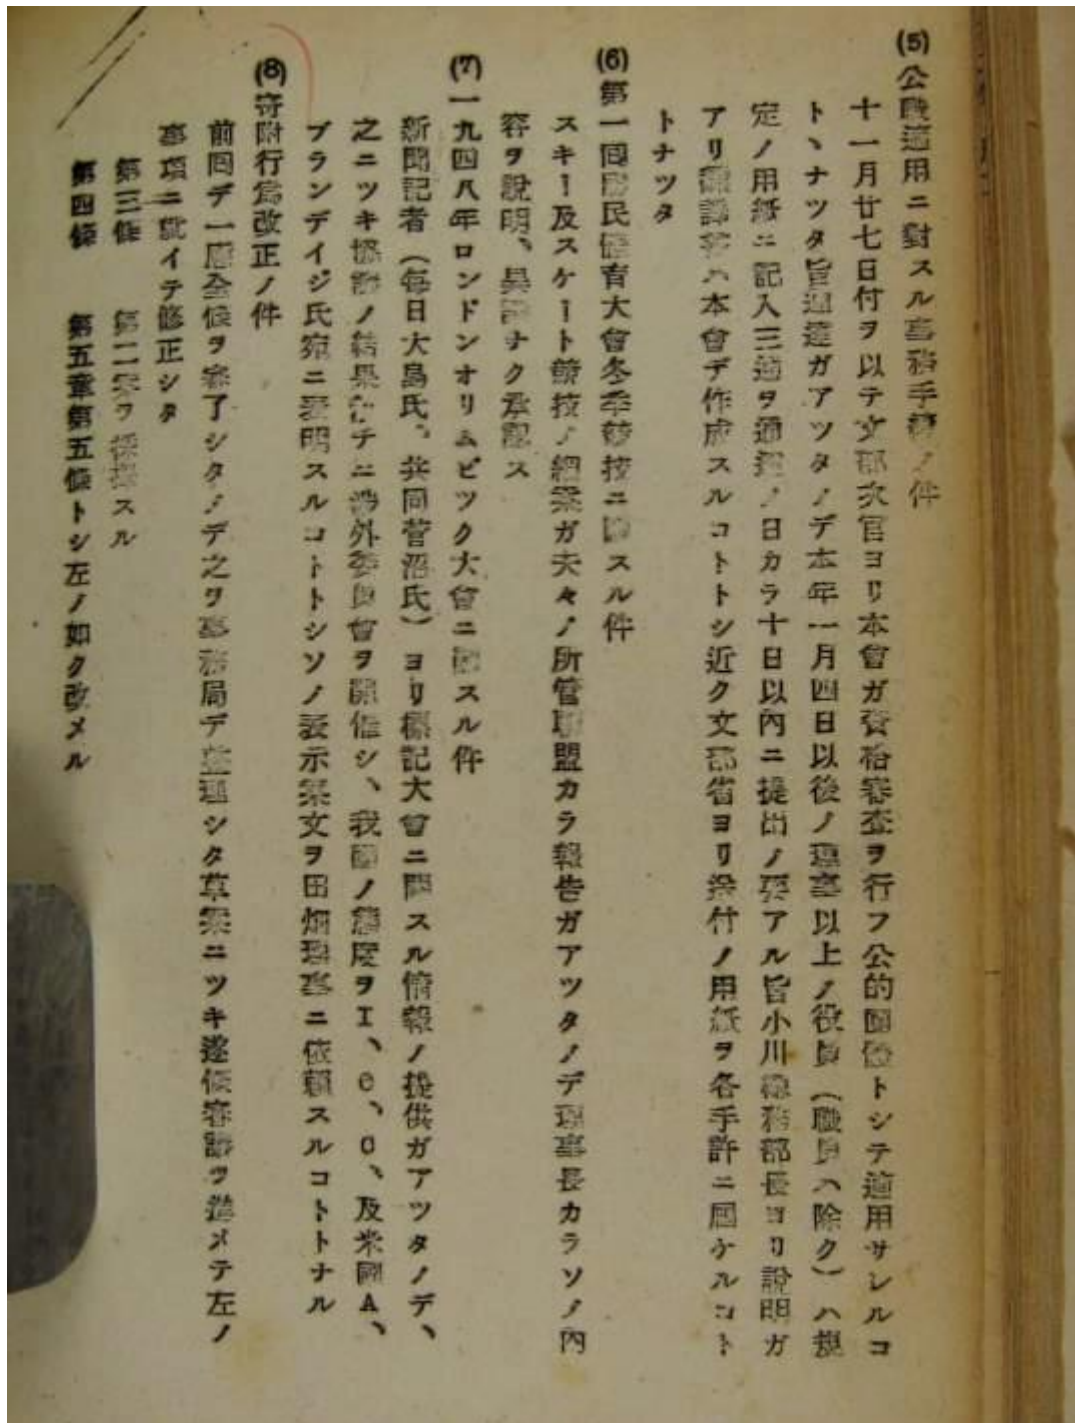 (5)公職適用ニ對スル事務手續ノ件
十一月廿七日付ヲ以テ文部次官ヨリ本會ガ資格審査ヲ行フ公的團體トシテ適用サレルコ
トヽナツタ旨通達ガアツタノデ本年一月四日以後ノ理事以上ノ役員(職員ハ除ク)ハ規
定ノ用紙ニ記入三通ヲ通達ノ日カラ十日以內ニ提出ノ要アル旨小川總務部長ヨリ說明ガ
アリ飜譯等ハ本會デ作成スルコトトシ近ク文部省ヨリ送付ノ用紙ヲ各手許ニ屆ケルコト
トナツタ
(6)第一回國民體育大會冬季競技ニ關スル件
スキー及スケート競技ノ細案ガ夫々ノ所管聯盟カラ報告ガアツタノデ理事長カラソノ內
容ヲ說明、異議ナク承認ス
(7)一九四八年ロンドンオリムピツク大會ニ關スル件
新聞記者(每日大島氏、共同菅沼氏)ヨリ標記大會ニ關スル情報ノ提供ガアツタノデ、
之ニツキ協議ノ結果チニ涉外委員會ヲ開催シ、我國ノ態度ヲI、O、C、及米國A、
ブランデイジ氏宛ニ表明スルコトトシソノ表示案文ヲ田畑理事ニ依賴スルコトトナル
(8)寄附行爲改正ノ件
前回デ一應全條ヲ審了シタノデ之ヲ事務局デ整理シタ草案ニツキ逐條審議ヲ進メテ左ノ
事項ニ就イテ修正シタ
第三條 第二案ヲ採擇スル
第四條 第五章第五條トシ左ノ如ク改メル